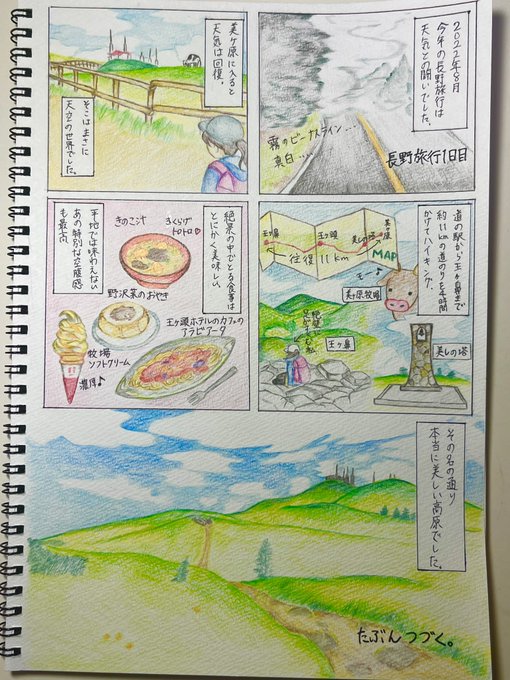 2022年8月
今年の長野旅行は
天気との闘いでした。
霧のビーナスライン…
真白…
長野旅行1日目
美ヶ原に入ると
天気は回復。
そこはまさに
天空の世界でした。
道の駅から王ヶ鼻まで
約11kmの道のりを4時間
かけてハイキング。
王ヶ鼻
王ヶ頭
美しの塔
美ヶ原
往復11km
MAP
モー♪
美ヶ原牧場
絶壁に
王ヶ鼻
美しの塔
絶景の中でとる食事は
とにかく美味しい。
平地では味わえない
あの特別な空腹感
も最高
きのこ汁
きくらげ
トロトロ♡
野沢菜のおやき
王ヶ頭ホテルのカフェの
アラビアータ
牧場
ソフトクリーム
濃厚♪
その名の通り
本当に美しい高原でした。
たぶんつづく。